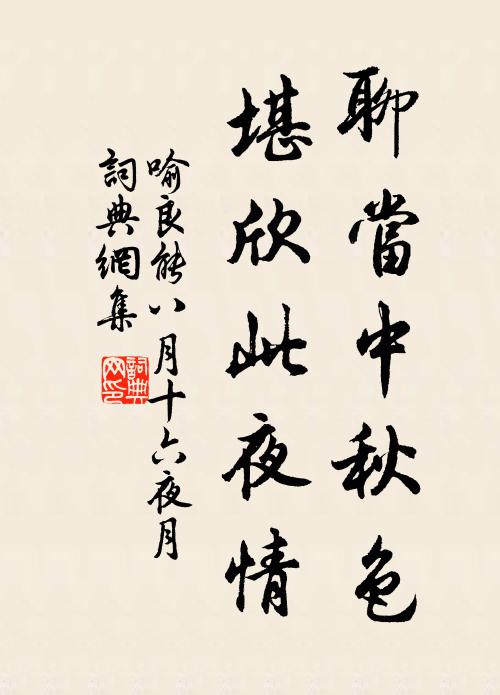 聊當中秋色
堪欣此夜情
喻良能八月十六夜月
詞典網集
詞典网印